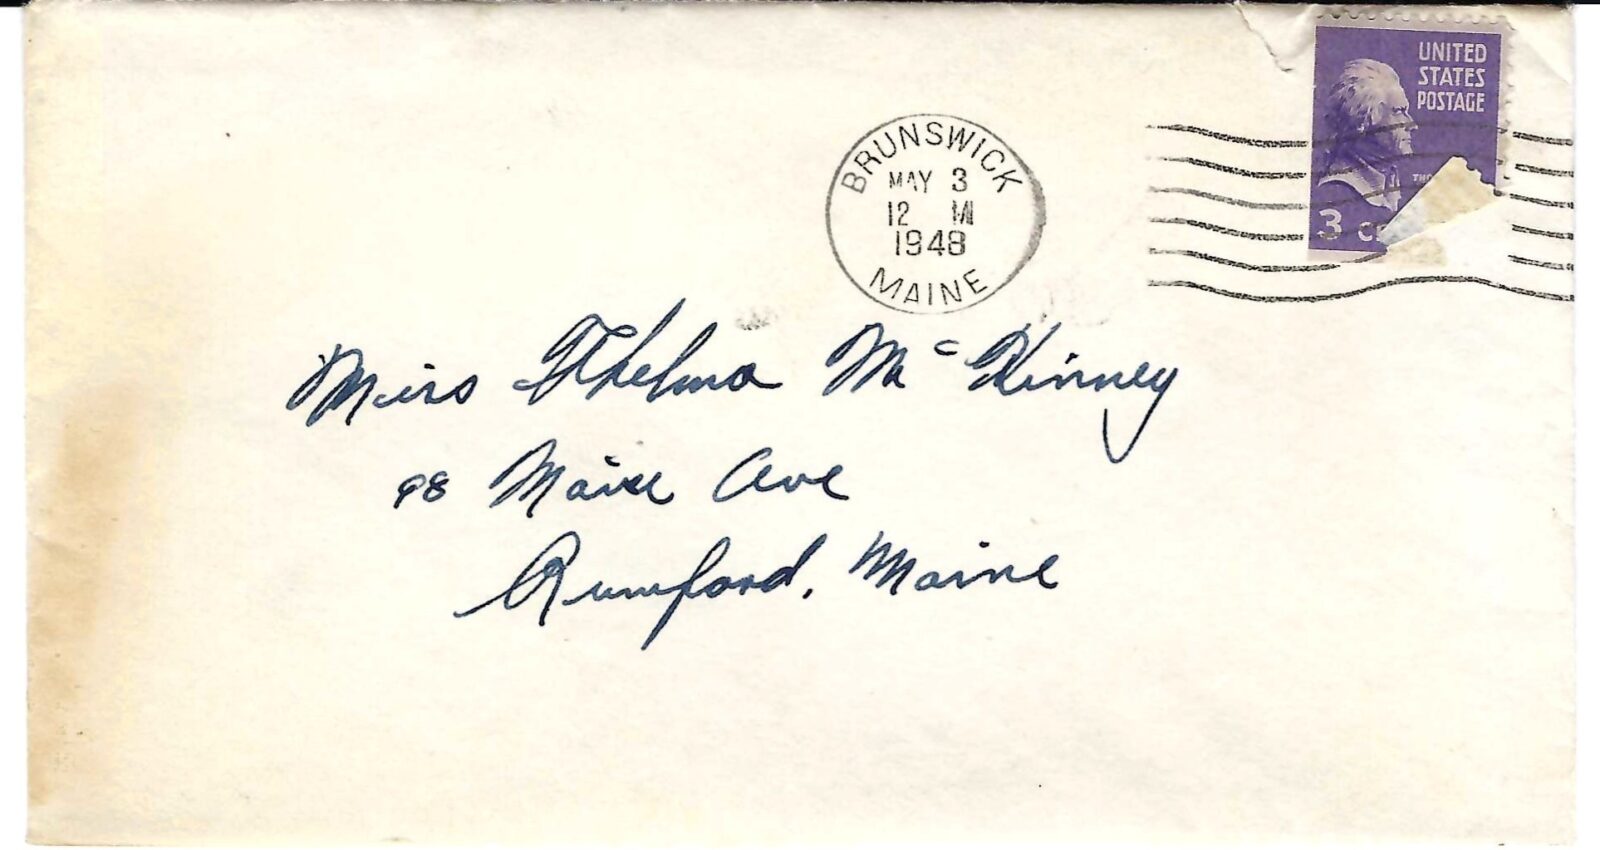 UNITED
STATES
POSTAGE
THO
3 CE
BRUNSWICK
MAY 3
12 M
1948
MAINE
Miss Thelma McKinney
98 Maine Ave
Rumford, Maine